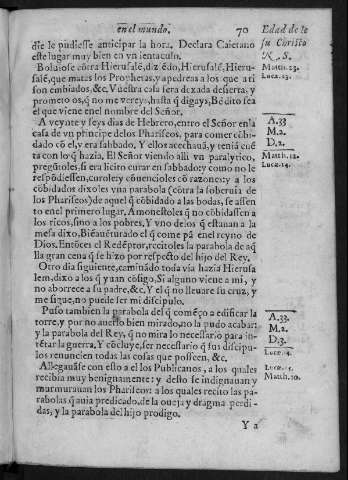 en el mundo. 70
Edad de
Christo
N. S.
die le pudiesse anticipar la hora. Declara Caietano
este lugar muy bien cō vn ientaculo.
Boluiose cōtra Hierusalē, diziēdo, Hierusalē, Hieru-
salē, que matas los Prophetas, y apedreas a los que a ti
son embiados, &c. Vuestra casa sera dexada desierta, y
prometo os, q̄ no me vereys, hasta q̄ digays, Bēdito sea
el que viene en el nombre del Señor.
Matth. 23.
Luca. 13.
A veynte y seys dias de Hebrero, entro el Señor en la
casa de vn principe delos Phariseos, para comer cōbi-
dado cō el, y era sabbado. Y ellos acechauā, y teniā cuē
ta con lo q̄ hazia. El Señor viendo alli vn paralytico,
pregūtoles, si era licito curar en sabbado: y como no le
respōdiessen, curolo y cōuenciolos cō razones: y a los
cōbidados dixoles vna parabola (cōtra la soberuia de
los Phariseos) de aquel q̄ cōbidado a las bodas, se assen
to en el primero lugar, Amonestoles q̄ no cōbidassen a
los ricos, sino a los pobres, Y vno delos q̄ estauan a la
mesa dixo, Biēauēturado el q̄ come pā en el reyno de
Dios, Entōces el Redēptor, recitoles la parabola de aq̄
lla gran cena q̄ se hizo por respecto del hijo del Rey.
A. 33
M. 2.
D. 2.
Matth. 22.
Luca. 14.
Otro dia siguiente, caminādo toda via hazia Hierusa
lem, dixo a los q̄ yuan cōsigo, Si alguno viene a mi, y
no aborrece a su padre, &c. Y el q̄ no lleuare su cruz, y
me sigue, no puede ser mi discipulo.
Puso tambien la parabola del q̄ comēço a edificar la
torre, y por no auerlo bien mirado, no la pudo acabar:
y la parabola del Rey, q̄ no mira lo necessario para in-
tētar la guerra, Y cōcluye, ser necessario q̄ sus discipu-
los renuncien todas las cosas que posseen, &c.
A. 33.
M. 2.
D. 3.
Luce. 14.
Allegauāse con esto a el los Publicanos, a los quales
recibia muy benignamente: y desto se indignauan y
murmurauan los Phariseos: a los quales recito las pa-
rabolas q̄ auia predicado, de la oueja y dragma perdi-
das, y la parabola del hijo prodigo.
Luce. 15.
Matth. 10.
Y a